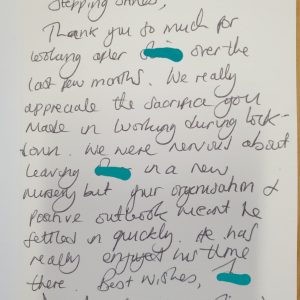 Stepping Stones,
Thank you so much for
looking after over the
last few months. We really
appreciate the sacrifice you
made in working during lock-
down. We were nervous about
leaving in a new
nursery but your organisation &
positive outlook meant he
settled in quickly. He has
really enjoyed his time
there. Best wishes,